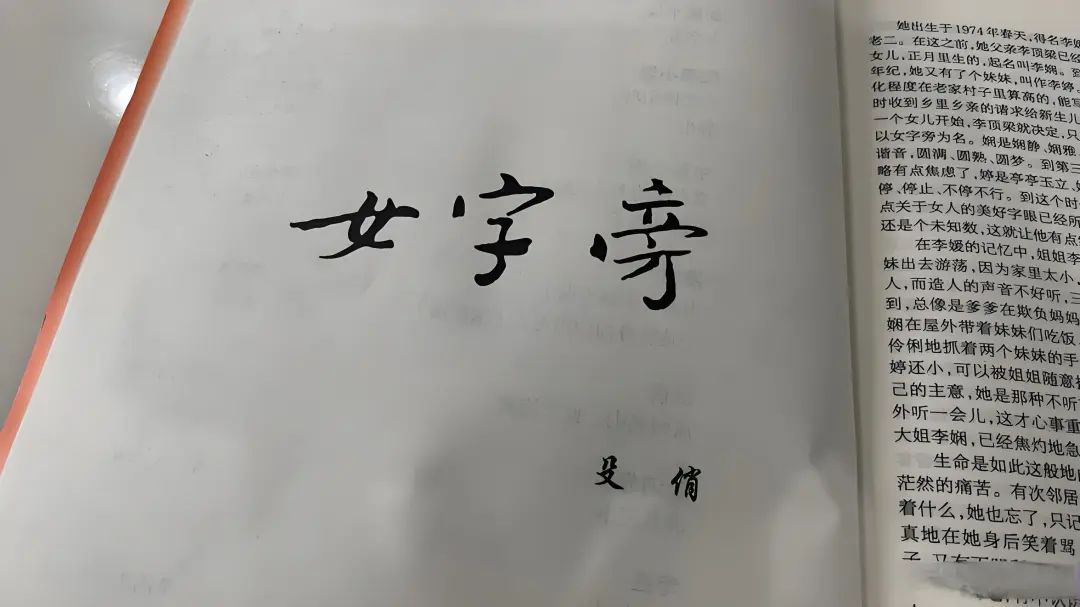 女字旁
殳俏
她出生于1974年春天,得名李媛
老二。在这之前,她父亲李顶梁已经
女儿,正月里生的,起名叫李娴。到
年纪,她又有了个妹妹,叫作李婷
化程度在老家村子里算高的,能写
时收到乡里乡亲的请求给新生儿
一个女儿开始,李顶梁就决定,只
以女字旁为名。娴是娴静、娴雅
谐音,圆满、圆熟、圆梦。到第三
略有点焦虑了,婷是亭亭玉立,
停、停止、不停不行。到这个时
点关于女人的美好字眼已经所
还是个未知数,这就让他有点
在李媛的记忆中,姐姐李
妹出去游荡,因为家里太小
人,而造人的声音不好听,三
到,总像是爹爹在欺负妈妈
娴在屋外带着妹妹们吃饭
伶俐地抓着两个妹妹的手
婷还小,可以被姐姐随意
己的主意,她是那种不听
外听一会儿,这才心事重
大姐李娴,已经焦灼地急
生命是如此这般地
茫然的痛苦。有次邻居
着什么,她也忘了,只记
真地在她身后笑着骂